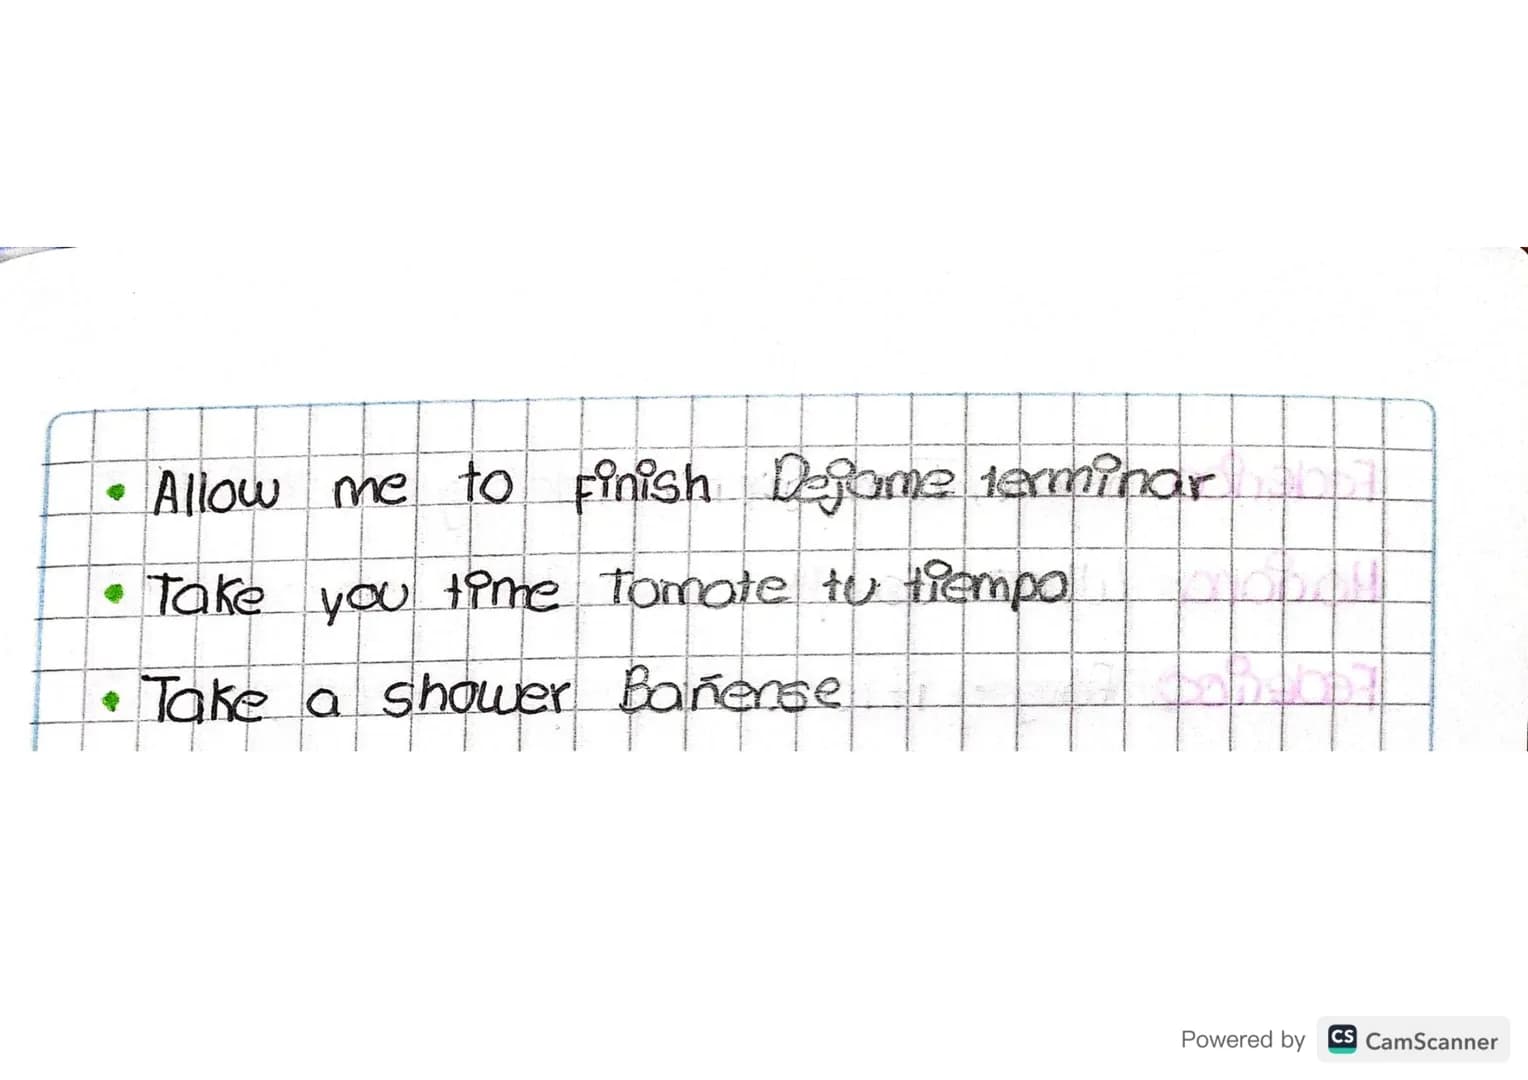 • Allow me to Finish Dejame terminar
• Take you time Tomate tu tiempo
• Take a shower Bañense
Powered by CS CamScanner